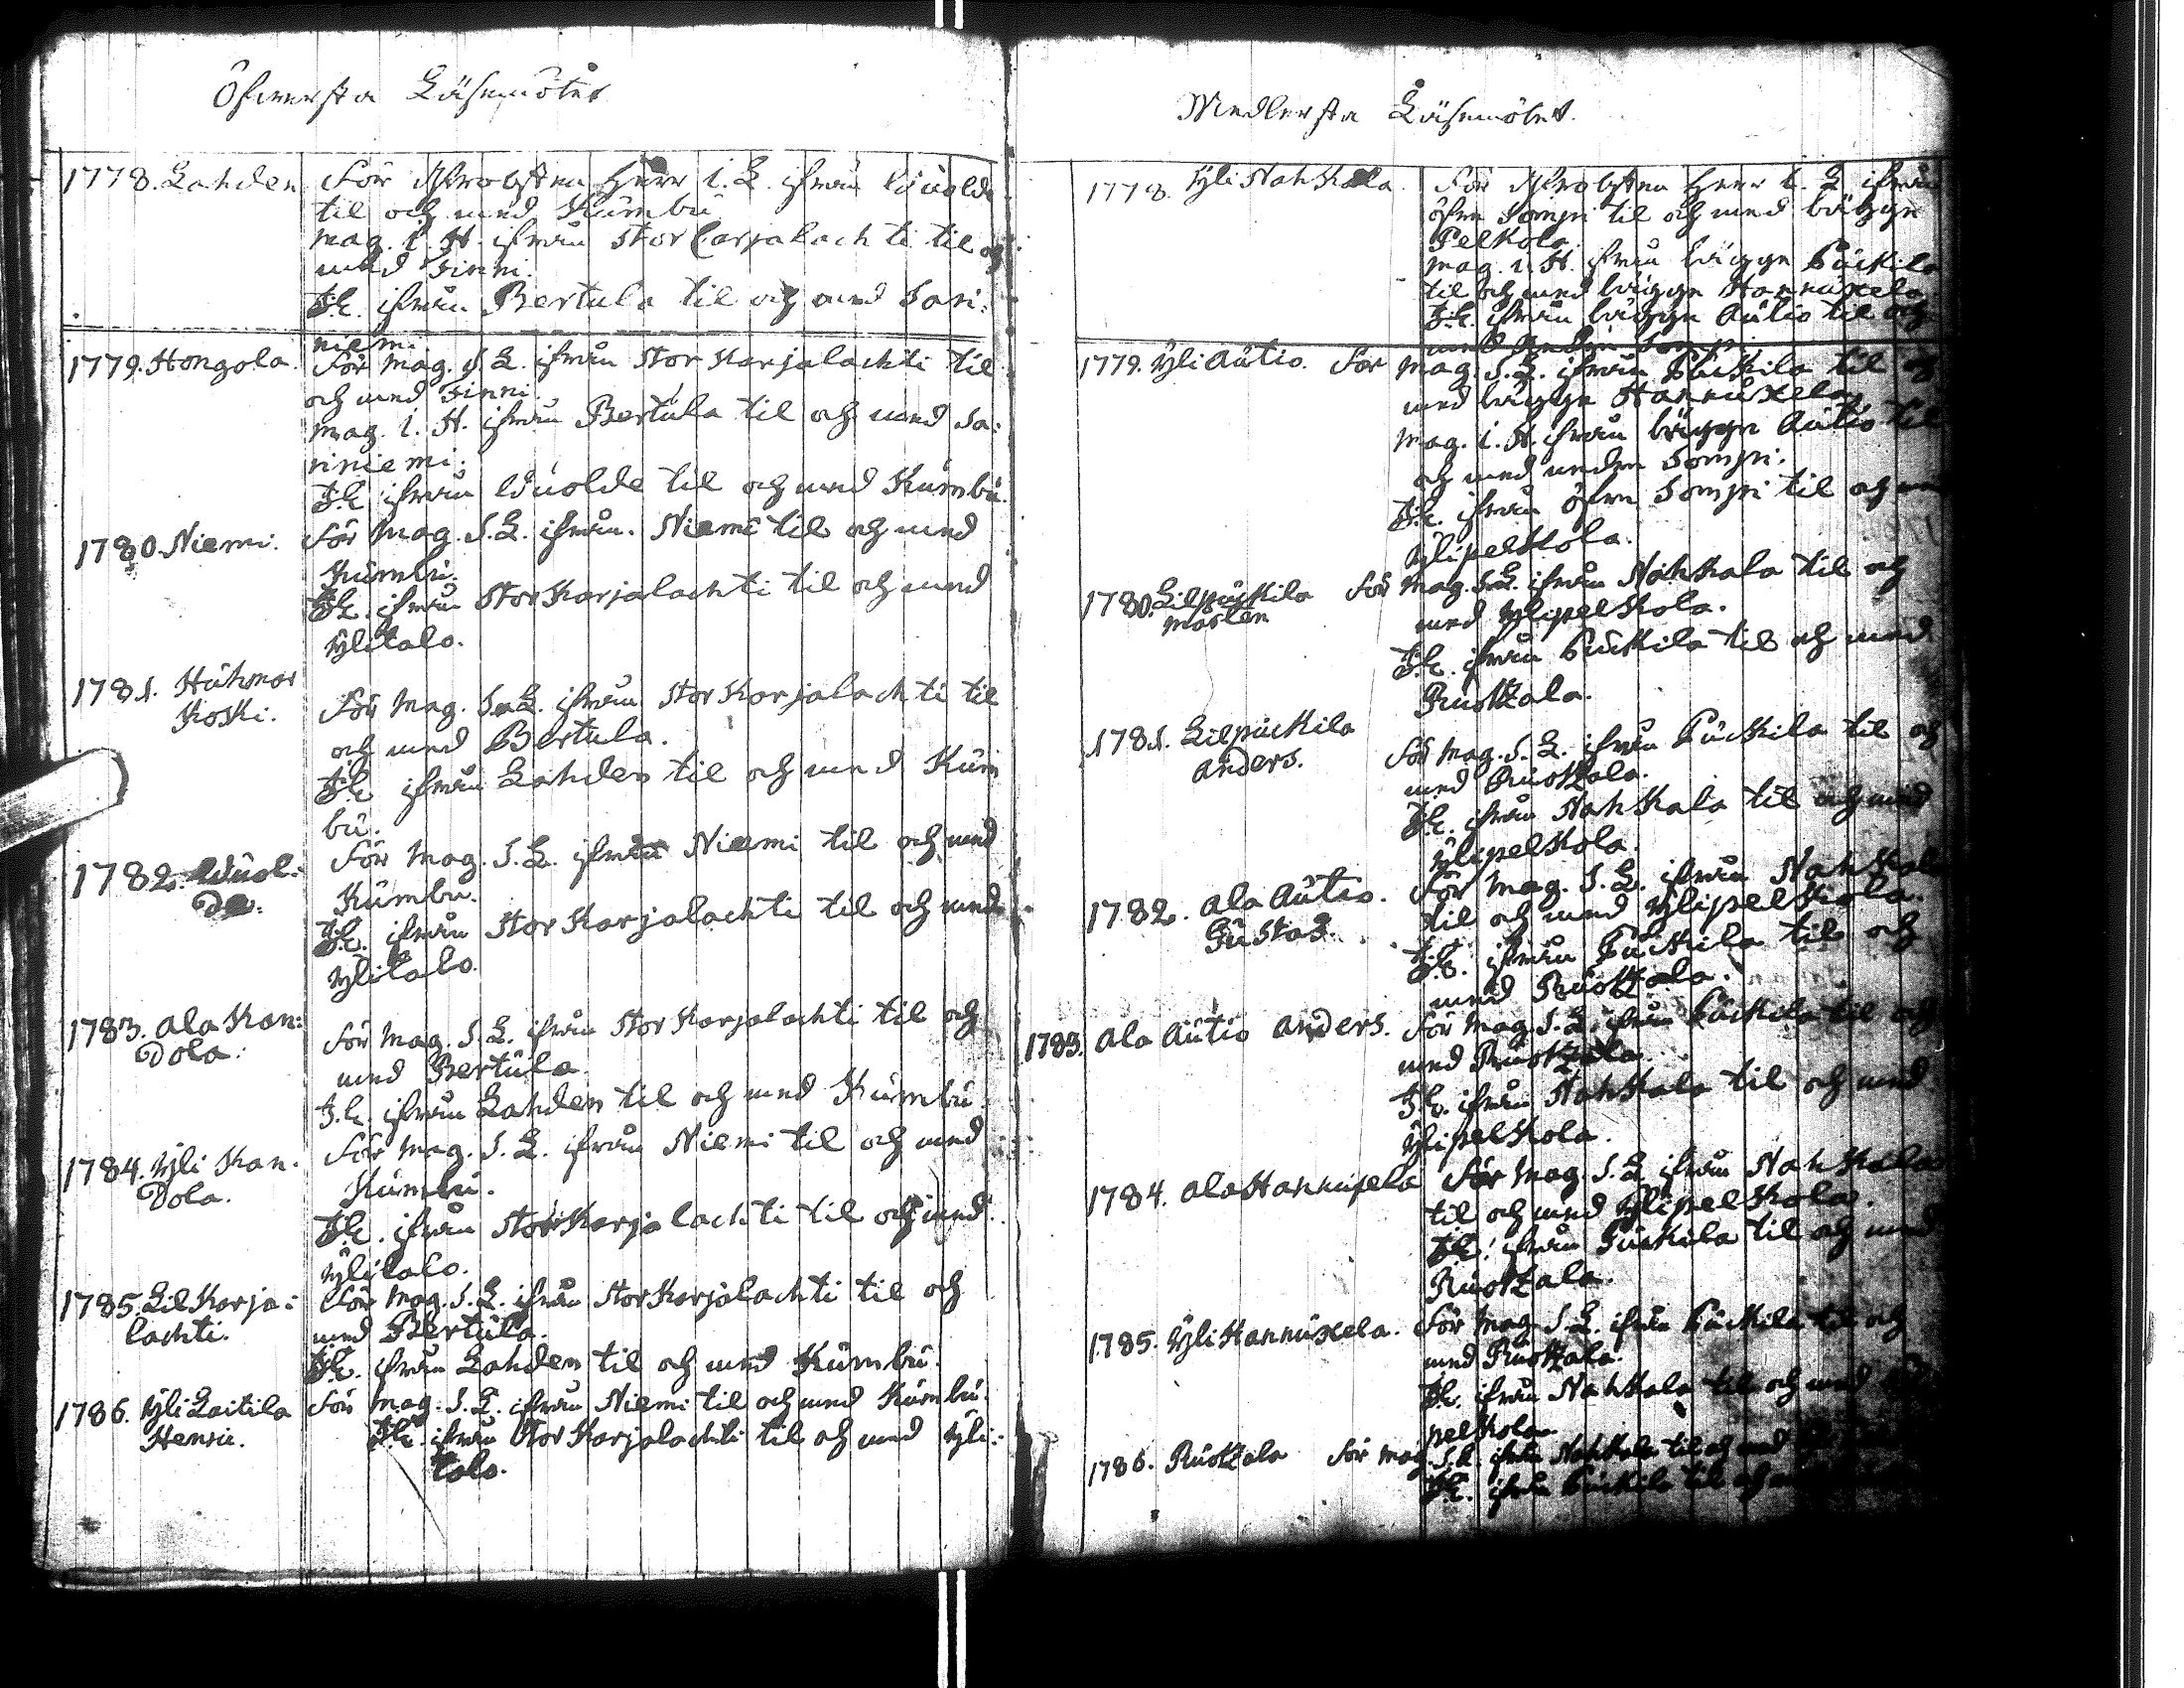 Öfversta Läsemötet
1778. Lahden För Probsten Herr i. L. ifrån Wuolde
til och med Kumbu
Mag. i. H. ifrån Stor Carjalachti til och
med Finni.
J.E. ifrån Bertula til och med Sari:
niemi.
1779. Hongola. För Mag. J. L. ifrån Stor Karjalachti til
och med Finni.
Mag. i. H. ifrån Bertula til och med Sa:
riniemi.
J.E. ifrån Wuolde til och med Kumbu.
1780. Niemi. För Mag. J. L. ifrån Niemi til och med
Kumbu.
J.E. ifrån Stor Karjalachti til och med
Ylitalo.
1781. Huhmar
Koski. För Mag. J. L. ifrån Stor Karjalachti til
och med Bertula.
J.E. ifrån Lahden til och med Kum
bu.
1782. Wuol:
de. För Mag. J. L. ifrån Niemi til och med
Kumbu.
J.E. ifrån Stor Karjalachti til och med
Ylitalo.
1783. Ala Kan:
dola. För Mag. J. L. ifrån Stor Karjalachti til och
med Bertula
J.E. ifrån Lahden til och med Kumbu.
1784. Yli Kan:
dola. För Mag. J. L. ifrån Niemi til och med
Kumbu.
J.E. ifrån Stor Karjalachti til och med
Ylitalo.
1785. Lil Karja:
lachti. För Mag. J. L. ifrån Stor Karjalachti til och
med Bertula.
J.E. ifrån Lahden til och med Kumbu.
1786. Yli Laitila
Henric. För Mag. J. L. ifrån Niemi til och med Kumbu.
J.E. ifrån Stor Karjalachti til och med Yli:
talo.
Medlersta Läsemötet.
1778. Yli Nahkala. För Probsten Herr i. L. ifrån
öfre Sompi til och med bägge
Pelkola.
Mag. i. H. ifrån bägge Puckila
til och med bägge Hannuxela
J.E. ifrån bägge Autio til och
med nedre Sompi.
1779. Yli Autio. För Mag. J. L. ifrån Puckila til och
med bägge Hannuxela.
Mag. i. H. ifrån bägge Autio til
och med nedre Sompi.
J.E. ifrån öfre Sompi til och med
Ylipelkola.
1780. Lilpuckila
Morten För Mag. J. L. ifrån Nahkala til och
med Ylipelkola.
J.E. ifrån Puckila til och med
Ruotzala.
1781. Lilpuckila
Anders. För Mag. J. L. ifrån Puckila til och
med Ruotzala.
J.E. ifrån Nahkala til och med
Ylipelkola.
1782. Ala Autio.
Gustaf. För Mag. J. L. ifrån Nahkala
til och med Ylipelkola.
J.E. ifrån Puckila til och
med Ruotzala.
1783. Ala Autio Anders. För Mag. J. L. ifrån Puckila til och
med Ruotzala
J.E. ifrån Nahkala til och med
Ylipelkola.
1784. Ala Hannuxela För Mag. J. L. ifrån Nahkala
til och med Ylipelkola.
J.E. ifrån Puckila til och med
Ruotzala.
1785. Yli Hannuxela. För Mag. J. L. ifrån Puckila til och
med Ruotzala.
J.E. ifrån Nahkala til och med
pelkola.
1786. Ruotzala För Mag. J. L. ifrån Nahkala til och med
J.E. ifrån Puckila til och